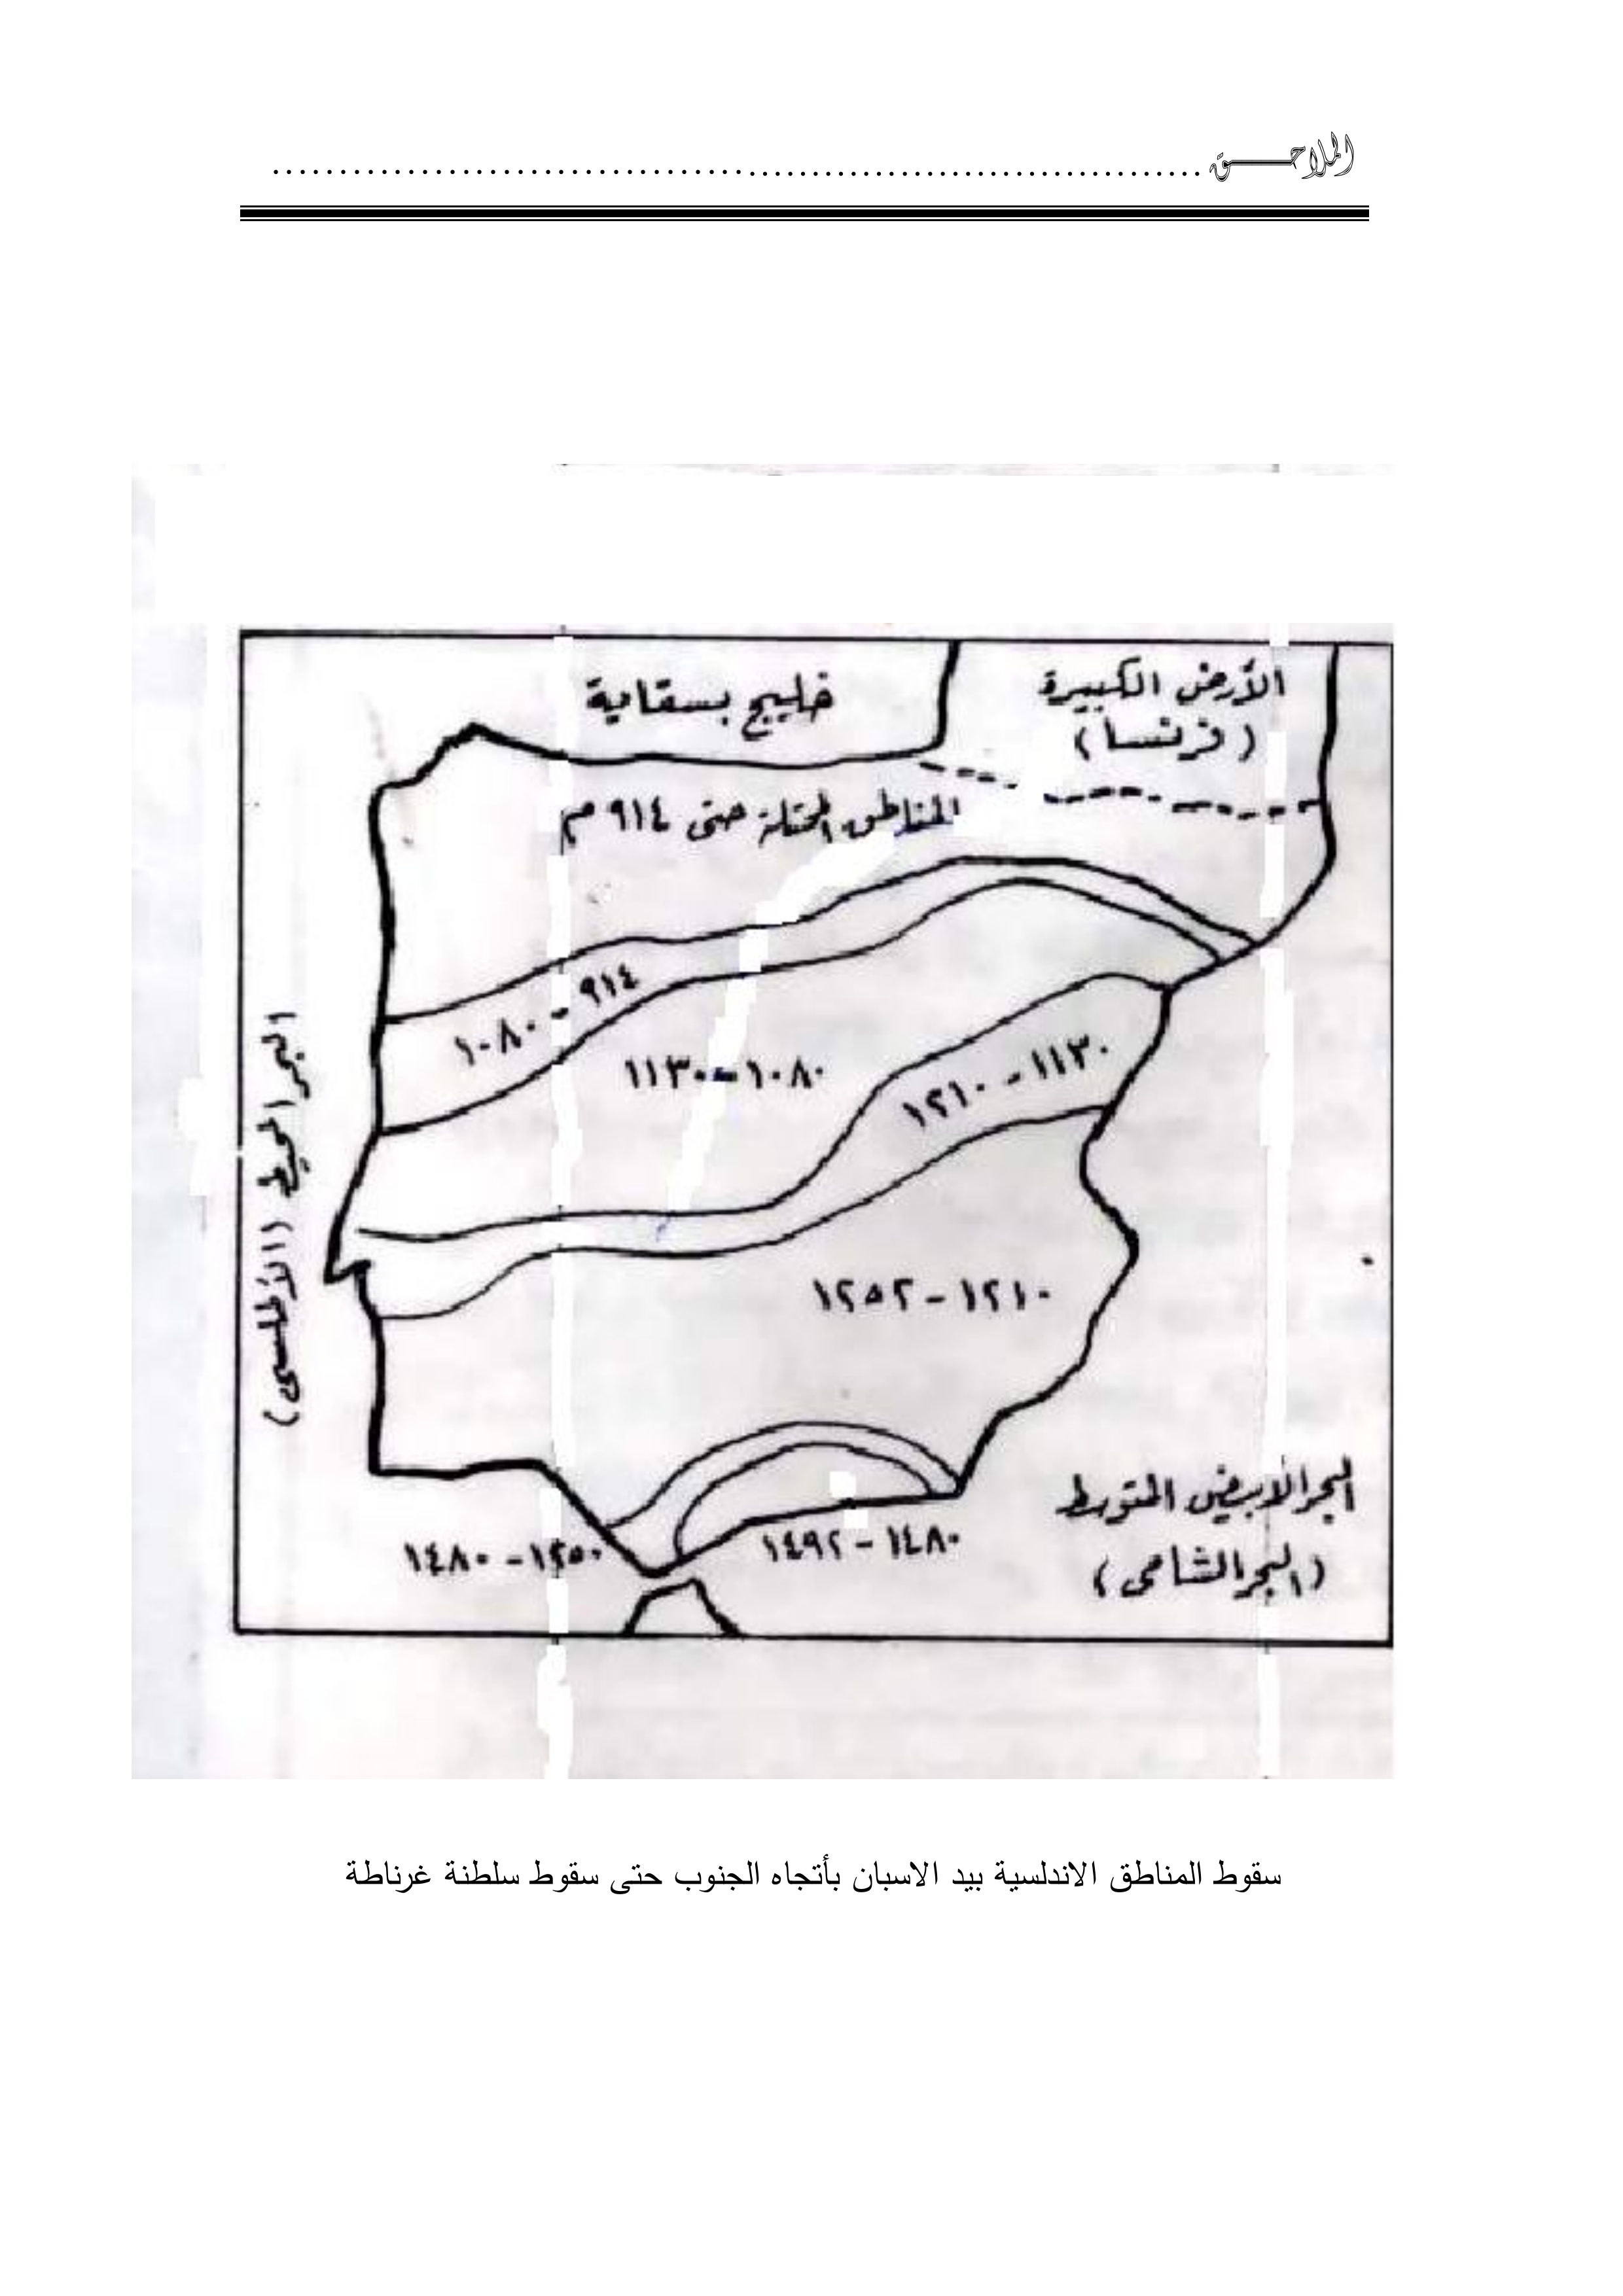 الملاحـــــق ......................................................................
خليج بسقاية
الأرض الكبيرة
(فرنسا)
المناطق المحتلة حتى ٩١٤ م
٩١٤ - ١٠٨٠
١٠٨٠ - ١١٣٠
١١٣٠ - ١٢١٠
البحر المحيط (الأطلسي)
١٢١٠ - ١٢٥٢
البحر الابيض المتوسط
(البحر الشامي)
١٢٥٠ - ١٤٨٠
١٤٨٠ - ١٤٩٢
سقوط المناطق الاندلسية بيد الاسبان بأتجاه الجنوب حتى سقوط سلطنة غرناطة